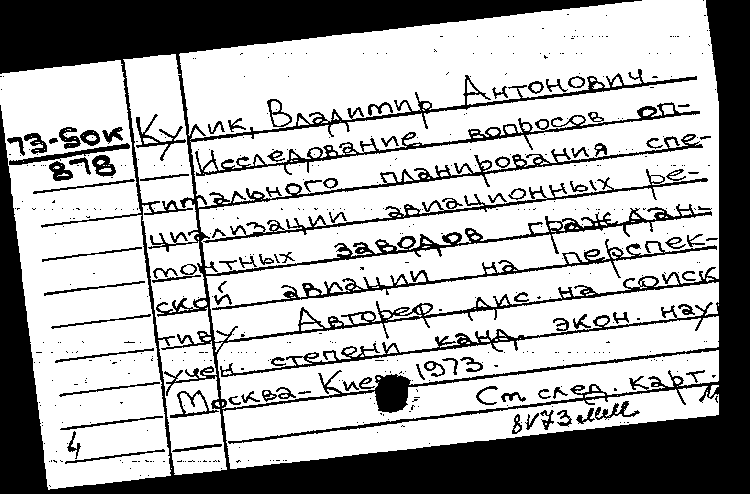 73-50к
878
Кулик, Владимир Антонович.
Исследование вопросов оп-
тимального планирования спе-
циализации авиационных ре-
монтных заводов граждан-
ской авиации на перспек-
тиву. Автореф. дис. на соиск
учен. степени канд. экон. наук
Москва-Киев 1973.
См след. карт.
8V73
4